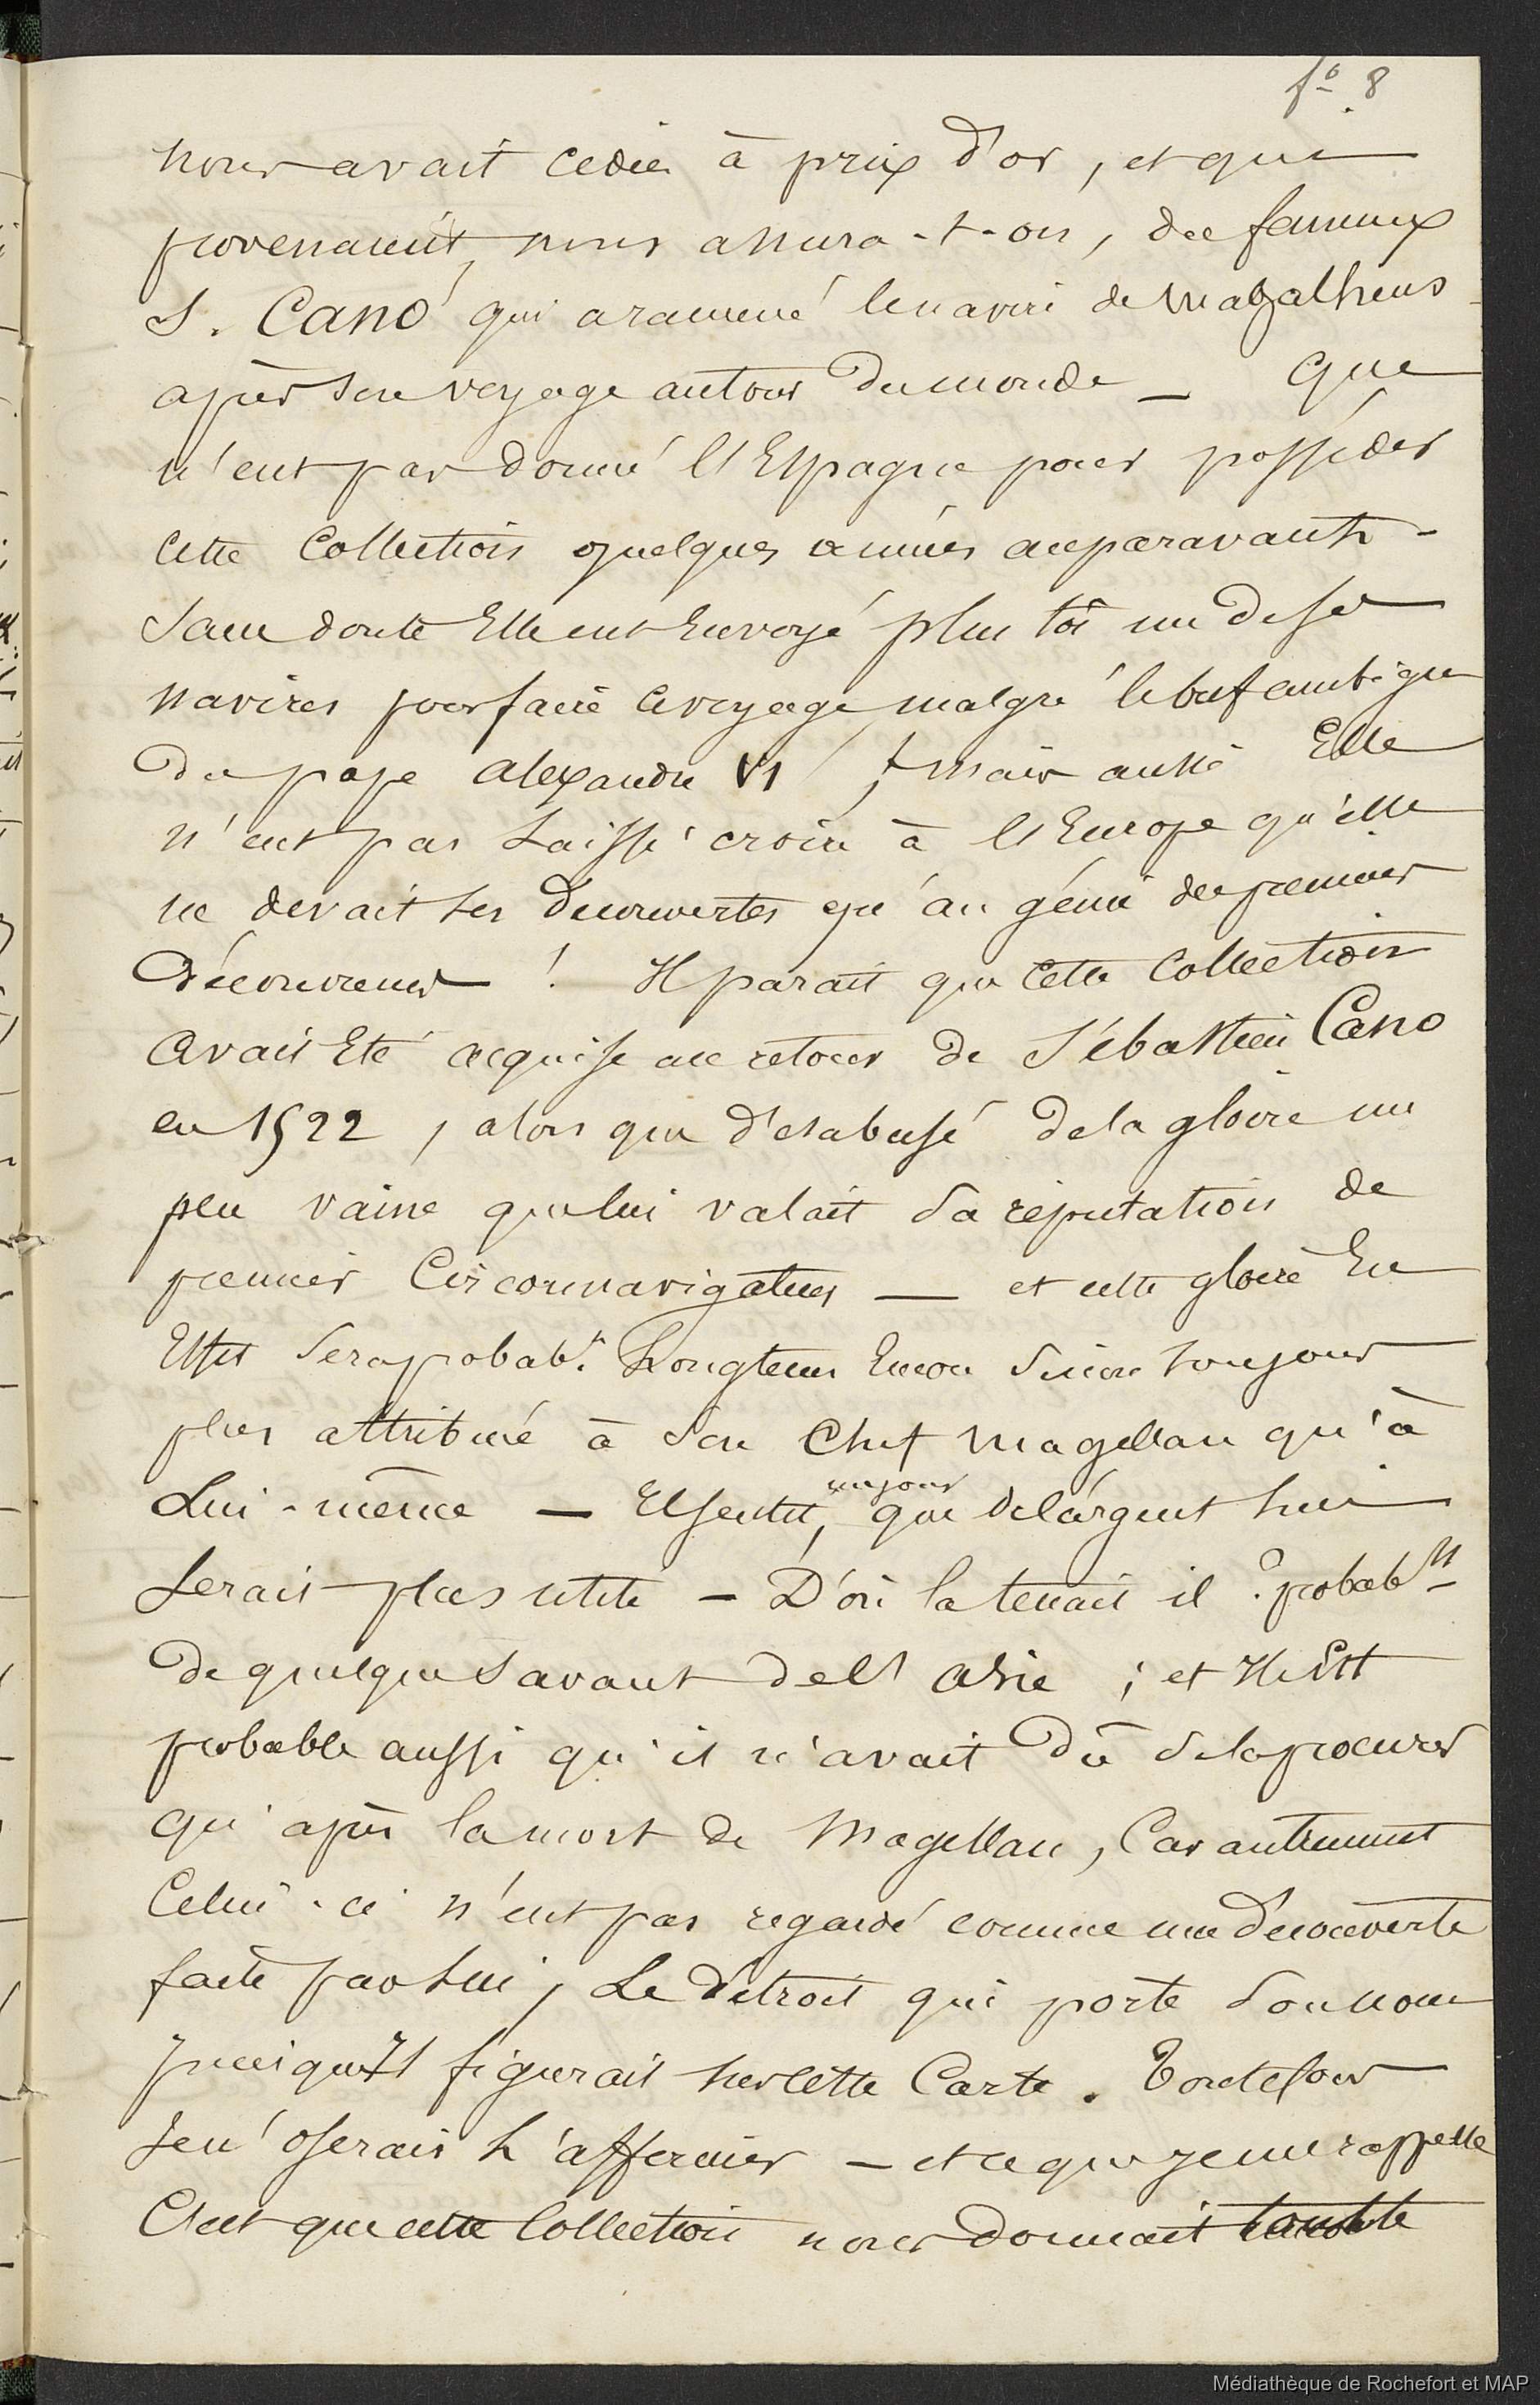 fo 8
nous avait cédée à prix d'or, et qui
provenaient, nous assura-t-on, du fameux
S. Cano qui a ramené le navire de Magalhens
après son voyage autour du monde — Que
n'eut pas donné l'Espagne pour posséder
cette Collection quelques années auparavant -
Sans doute Elle eut Envoyé plus tôt un de ses
navires pour faire ce voyage, malgré le bref ambigu
du pape Alexandre VI, mais aussi Elle
n'eut pas Laissé croire à l'Europe qu'elle
ne devait ses découvertes qu'au génie des premiers
Découvreurs ! Il parait que cette Collection
avait Eté acquise au retour de Sébastien Cano
en 1522, alors que désabusé de la gloire un
peu vaine que lui valait sa réputation de
premier Circonnavigateur — et cette gloire En
Effet sera probabt. Longtems Encore sinon toujours
plus attribuée à son Chef Magellan qu'à
Lui-même — Il sentit, un jour que de l'argent lui
serait plus utile — D'où la tenait il ? probablt
de quelque savant de l'Asie ; et Il Est
probable aussi qu'il n'avait dû se la procurer
qu'après la mort de Magellan, Car autrement
Celui-ci n'eut pas regardé comme une découverte
faite par Lui, Le détroit qui porte son nom
puisqu'Il figurait sur cette Carte. Toutefois
Je n'oserais L'affermer — et ce que je me rappelle
C'est que cette Collection nous donnait toute